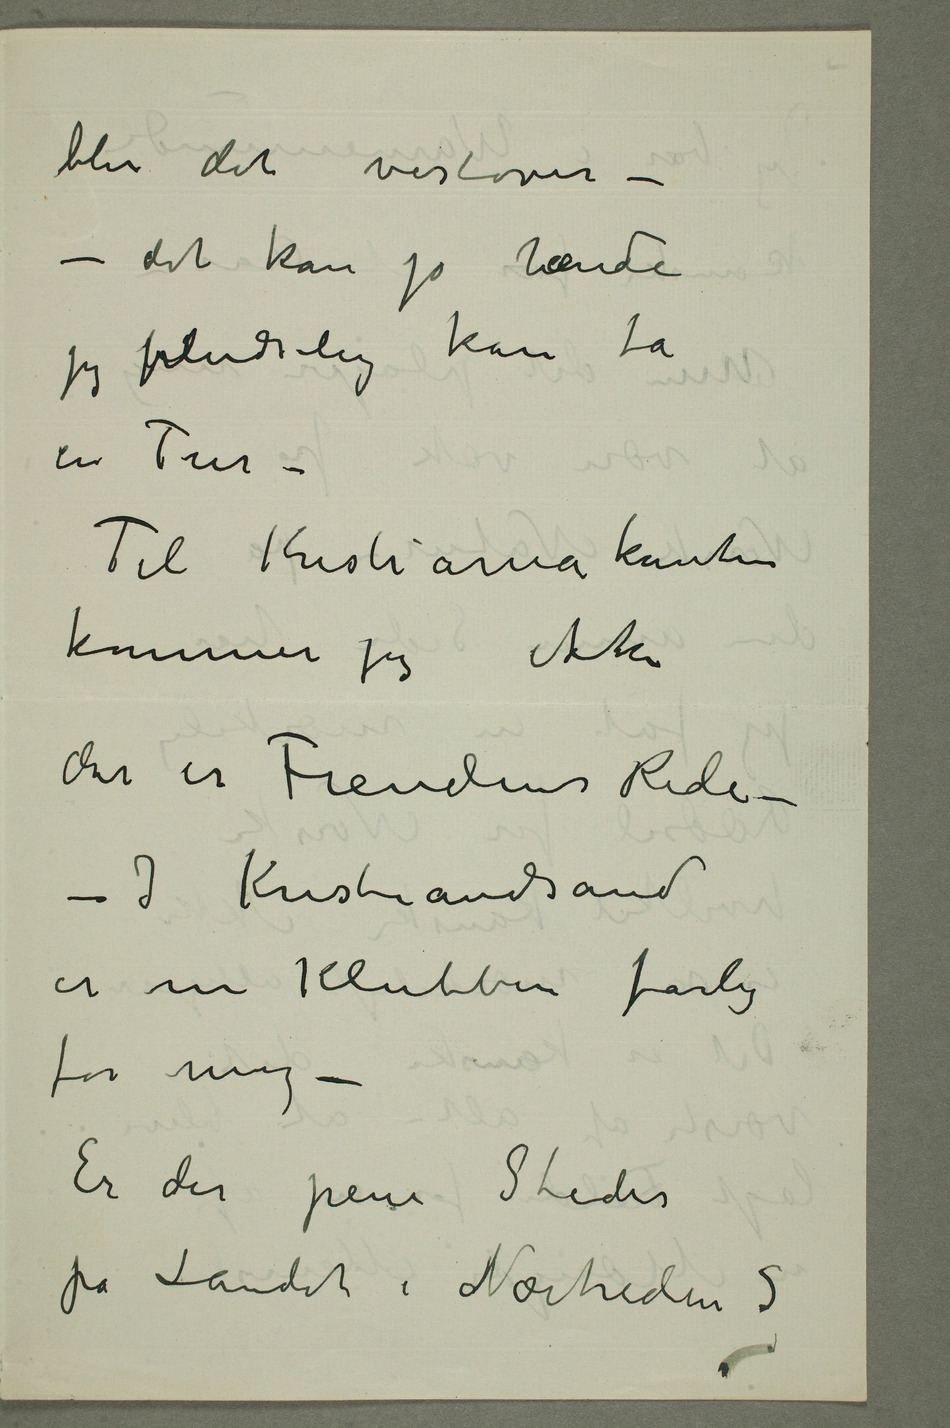 blir det vestover –
– det kan jo hænde
jeg pludselig kan ta
en Tur –
Til Kristiania kanten
kommer jeg ikke
der er Fiendens Rede –
– I Kristiandsand
er nu Klubben farlig
for mig –
Er der pene Steder
på Landet i Nærheden ?